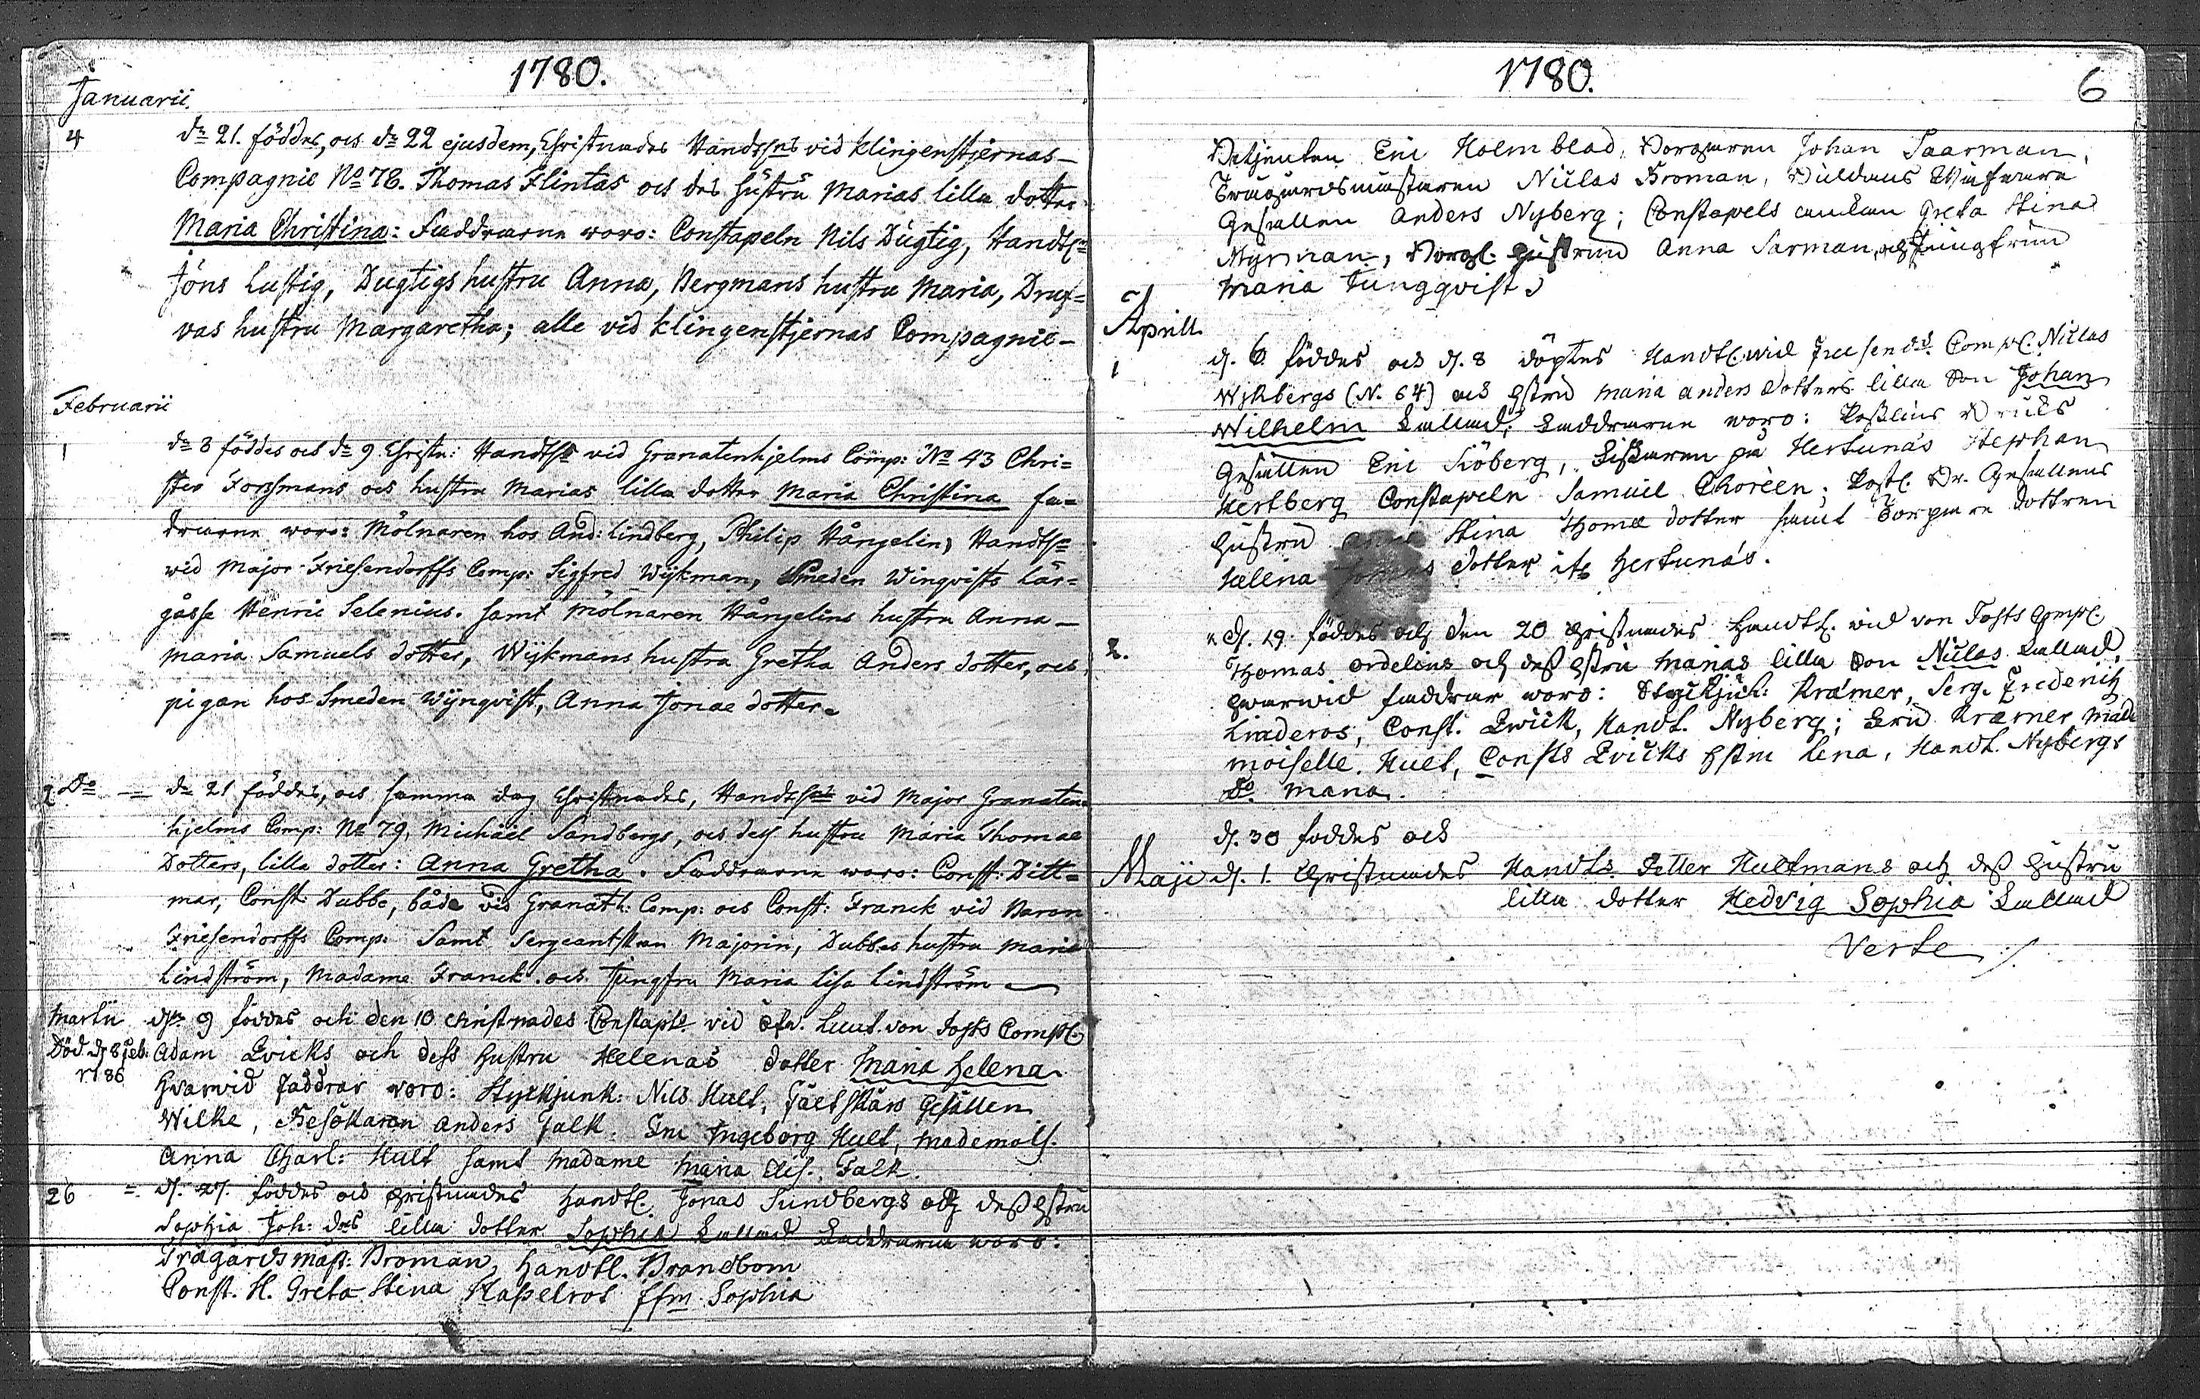 1780.
Januarii
4 dn 21. föddes, och dn 22 ejusdem, Christnades Handtl:ns vid Klingenstjernas
Compagnie No 78. Thomas Flintas och des hustru Marias lilla dotter
Maria Christina: Faddrarne woro: Constapeln Nils Dugtig, Handtl:n
Jöns Lustig, Dugtigs hustru Anna, Bergmans hustru Maria, Druf=
vas hustru Margaretha; alle vid Klingenstjernas Compagnie
Februarii
1 dn 8 föddes och dn 9 Christn: Handtl:s vid Granatenhjelms Comp: No 43 Chri=
sters Forssmans och hustru Marias lilla dotter Maria Christina fa=
drarne woro: Mölnaren hos And: Lindberg, Philip Hångelin, Handtl:n
vid Major Friesendorffs Comp: Sigfred Wijkman, Smeden Winqvists Lär=
gåsse Henric Selenius. samt Mölnaren Hångelins hustru Anna
Maria Samuels dotter, Wijkmans hustru Gretha Anders dotter, och
pigan hos Smeden Wijnqvist, Anna Jonae dotter
2 Do dn 21 föddes, och samma dag Christnades, Handtl:ns vid Major Granaten
hjelms Comp: No 79, Michäel Sandbergs, och dess hustru Maria Thomae
Dotters, lilla dotter: Anna Gretha. Faddrarne woro: Const: Ditt=
mar, Const: Dubbe, både vid Granath: Comp: och Const: Franck vid Baron
Friesendorffs Comp: Samt Sergeantskan Majorin, Dubbes hustru Maria
Lindström, Madame Franck. och Jungfru Maria Lisa Lindström
Martii dn 9 föddes och den 10 christnades Constapls vid Öfv. Lieut. von Josts Comp:
Död d. 8 feb: Adam Qvicks och dess hustru Helenas dotter Maria Helena.
1786 Hvarvid faddrar voro: Styckjunk: Nils Hult, Fältskärs Gesällen
Wilke, Besökaren Anders Falk. Fru Ingeborg Hult, Mademois.
Anna Charl: Hult samt Madame Maria Elis. Falk.
26 d. 27. föddes och Christnades Handtl. Jonas Sundbergs och dess hstru
Sophia Joh: drs lilla dotter Sophia kallad Faddrarne voro:
Trägårdsmäst: Broman, Handtl. Brandbom
Const. H. Greta Stina Hasselrot Jfru Sophia
1780.
6
Betjenten Eric Holmblad, Borgaren Johan Saarman,
Trägårdsmästaren Niclas Broman,
Gesällen Anders Nyberg; Constapels Greta Stina
Myrman, Borgl. hustrun Anna Sarman, och Jungfrun
Maria Jungqvist
Aprill
1 d. 6 föddes och d. 8 döptes Handtl. wid Friesend. Comp. Niclas
Wykbergs (N. 64) och hstru Maria Anders dotters lilla Son Johan
Wilhelm kallad, Faddrarne woro:
Gesällen Eric Siöberg, Fiskaren på Hertunäs Stephan
Hertberg Constapeln Samuel Choréen; Gesällens
hustru Stina Thomæ dotter samt dottren
Helena dotter ifr. Hertunäs.
2. d. 19. föddes och den 20 Christnades Handtl. wid von Josts Comp.
Thomas Ordelins och dess hstru Marias lilla Son Niclas kallad,
hvarwid faddrar woro: Styckjunk: Kræmer, Serg. Frederich
Linderos, Const. Qwick, Handt. Nyberg; Fru Kræmer, Made
moiselle. Hult, Consts Qvicks hstru Lena, Handt. Nybergs
Do Maria.
d. 30 foddes och
Maji d. 1. Christnades Handtl. Petter Hultmans och dess hustru
lilla dotter Hedvig Sophia kallad
Verte